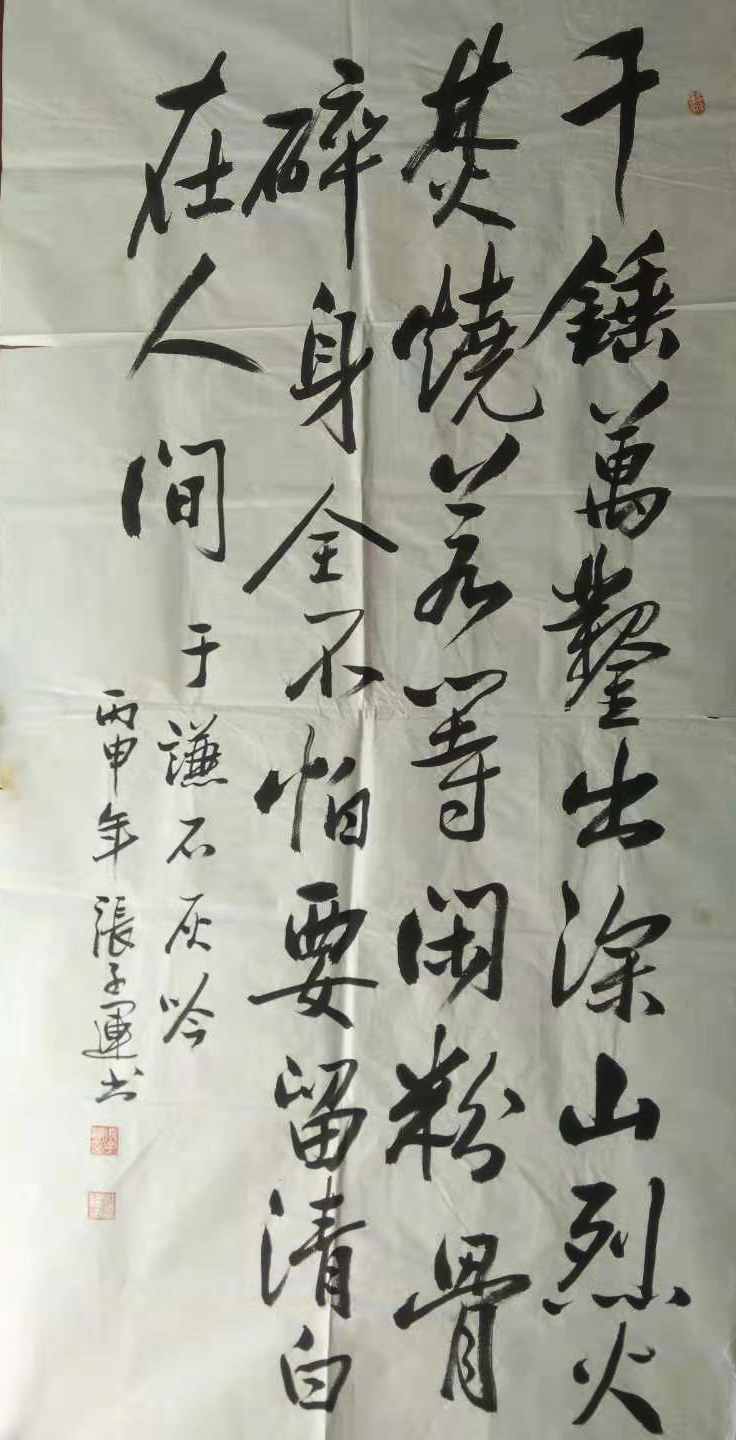 千錘萬鑿出深山烈火
焚燒若等閑粉骨
碎身全不怕要留清白
在人间
于謙石灰吟
丙申年張子運书